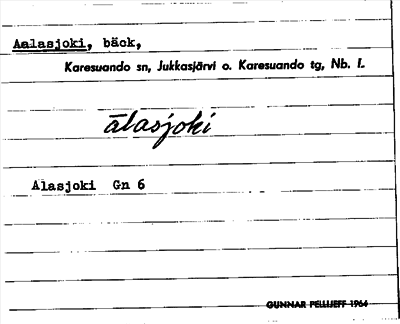 Aalasjoki, bäck,
Karesuando sn, Jukkasjärvi o. Karesuando tg, Nb. l.
ālasjoki
Alasjoki Gn 6
GUNNAR PELLIJEFF 1964